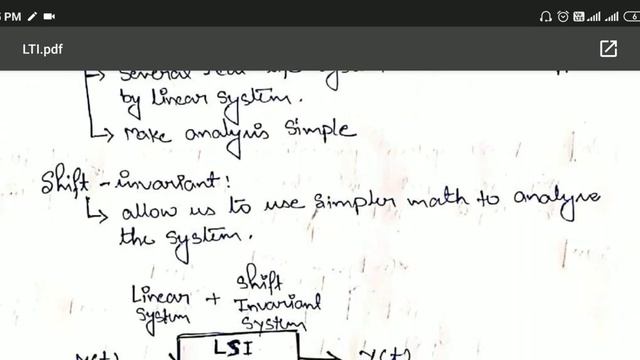 PM
LTI.pdf
↳ Several
by Linear System.
↳ Make analysis Simple
Shift-invariant:
↳ allow us to use simpler math to analyze
the system.
Linear + Shift
System Invariant
System
LSI
x(t) → → y(t)